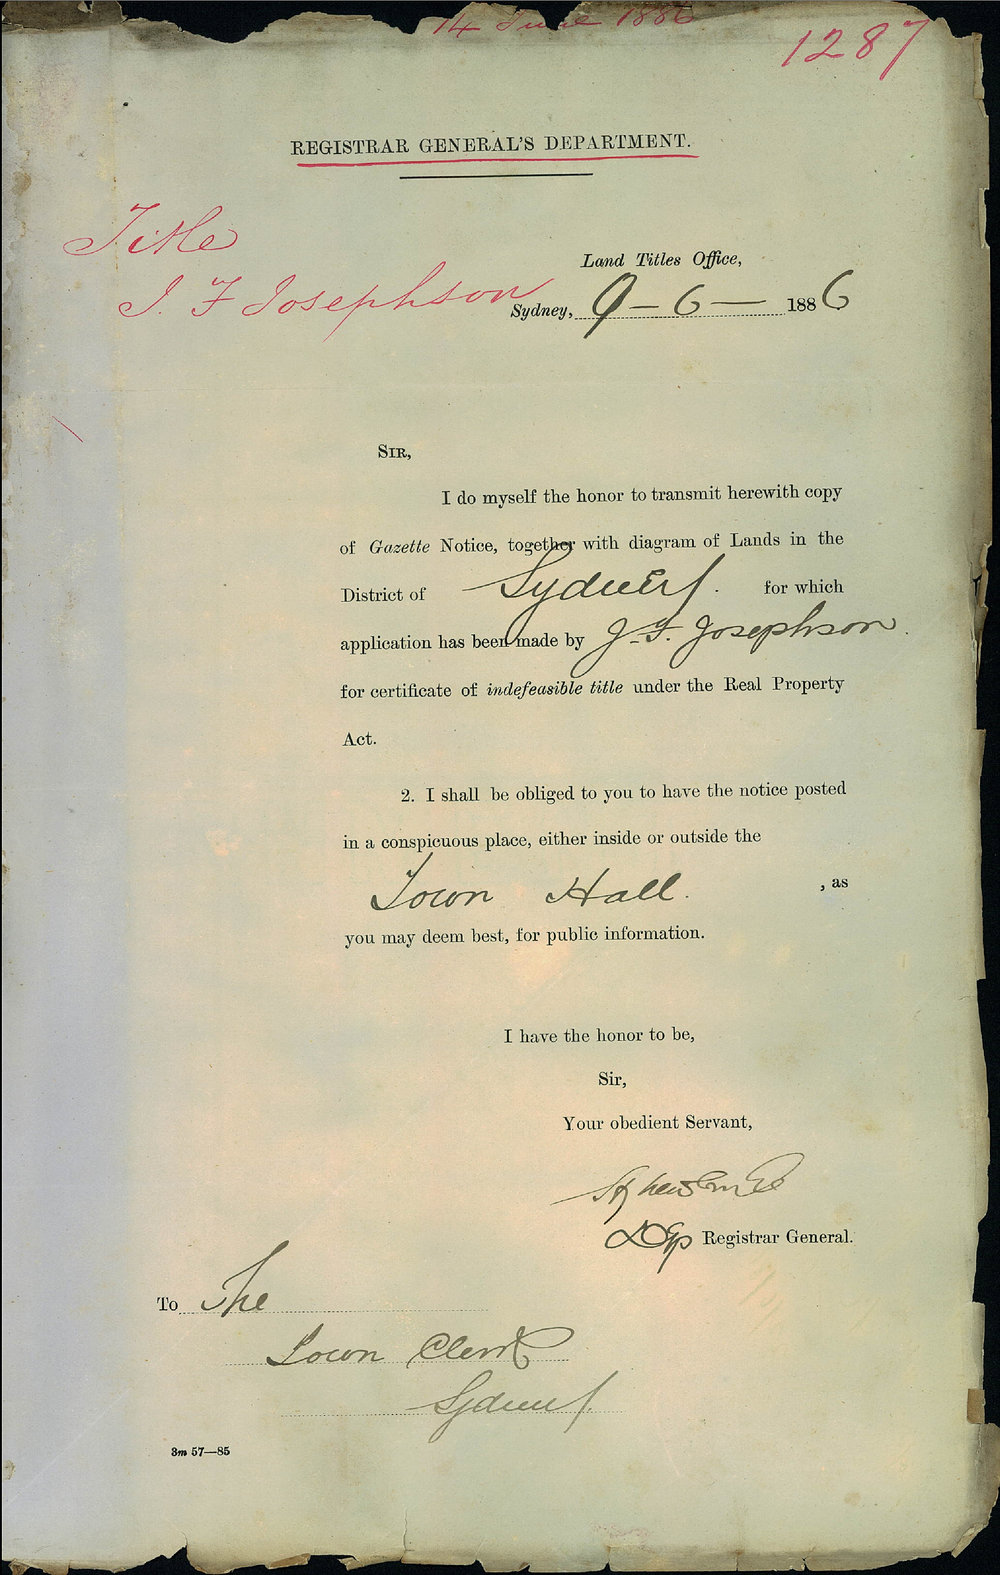 14 June 1886
1287
REGISTRAR GENERAL'S DEPARTMENT.
Title
J. F Josephson
Land Titles Office,
Sydney, 9 – 6 – 1886
SIR,
I do myself the honor to transmit herewith copy
of Gazette Notice, together with diagram of Lands in the
District of Sydney. for which
application has been made by J. F. Josephson.
for certificate of indefeasible title under the Real Property
Act.
2. I shall be obliged to you to have the notice posted
in a conspicuous place, either inside or outside the
Town Hall. , as
you may deem best, for public information.
I have the honor to be,
Sir,
Your obedient Servant,
Dep Registrar General.
To The
Town Clerk
Sydney.
3m 57—85